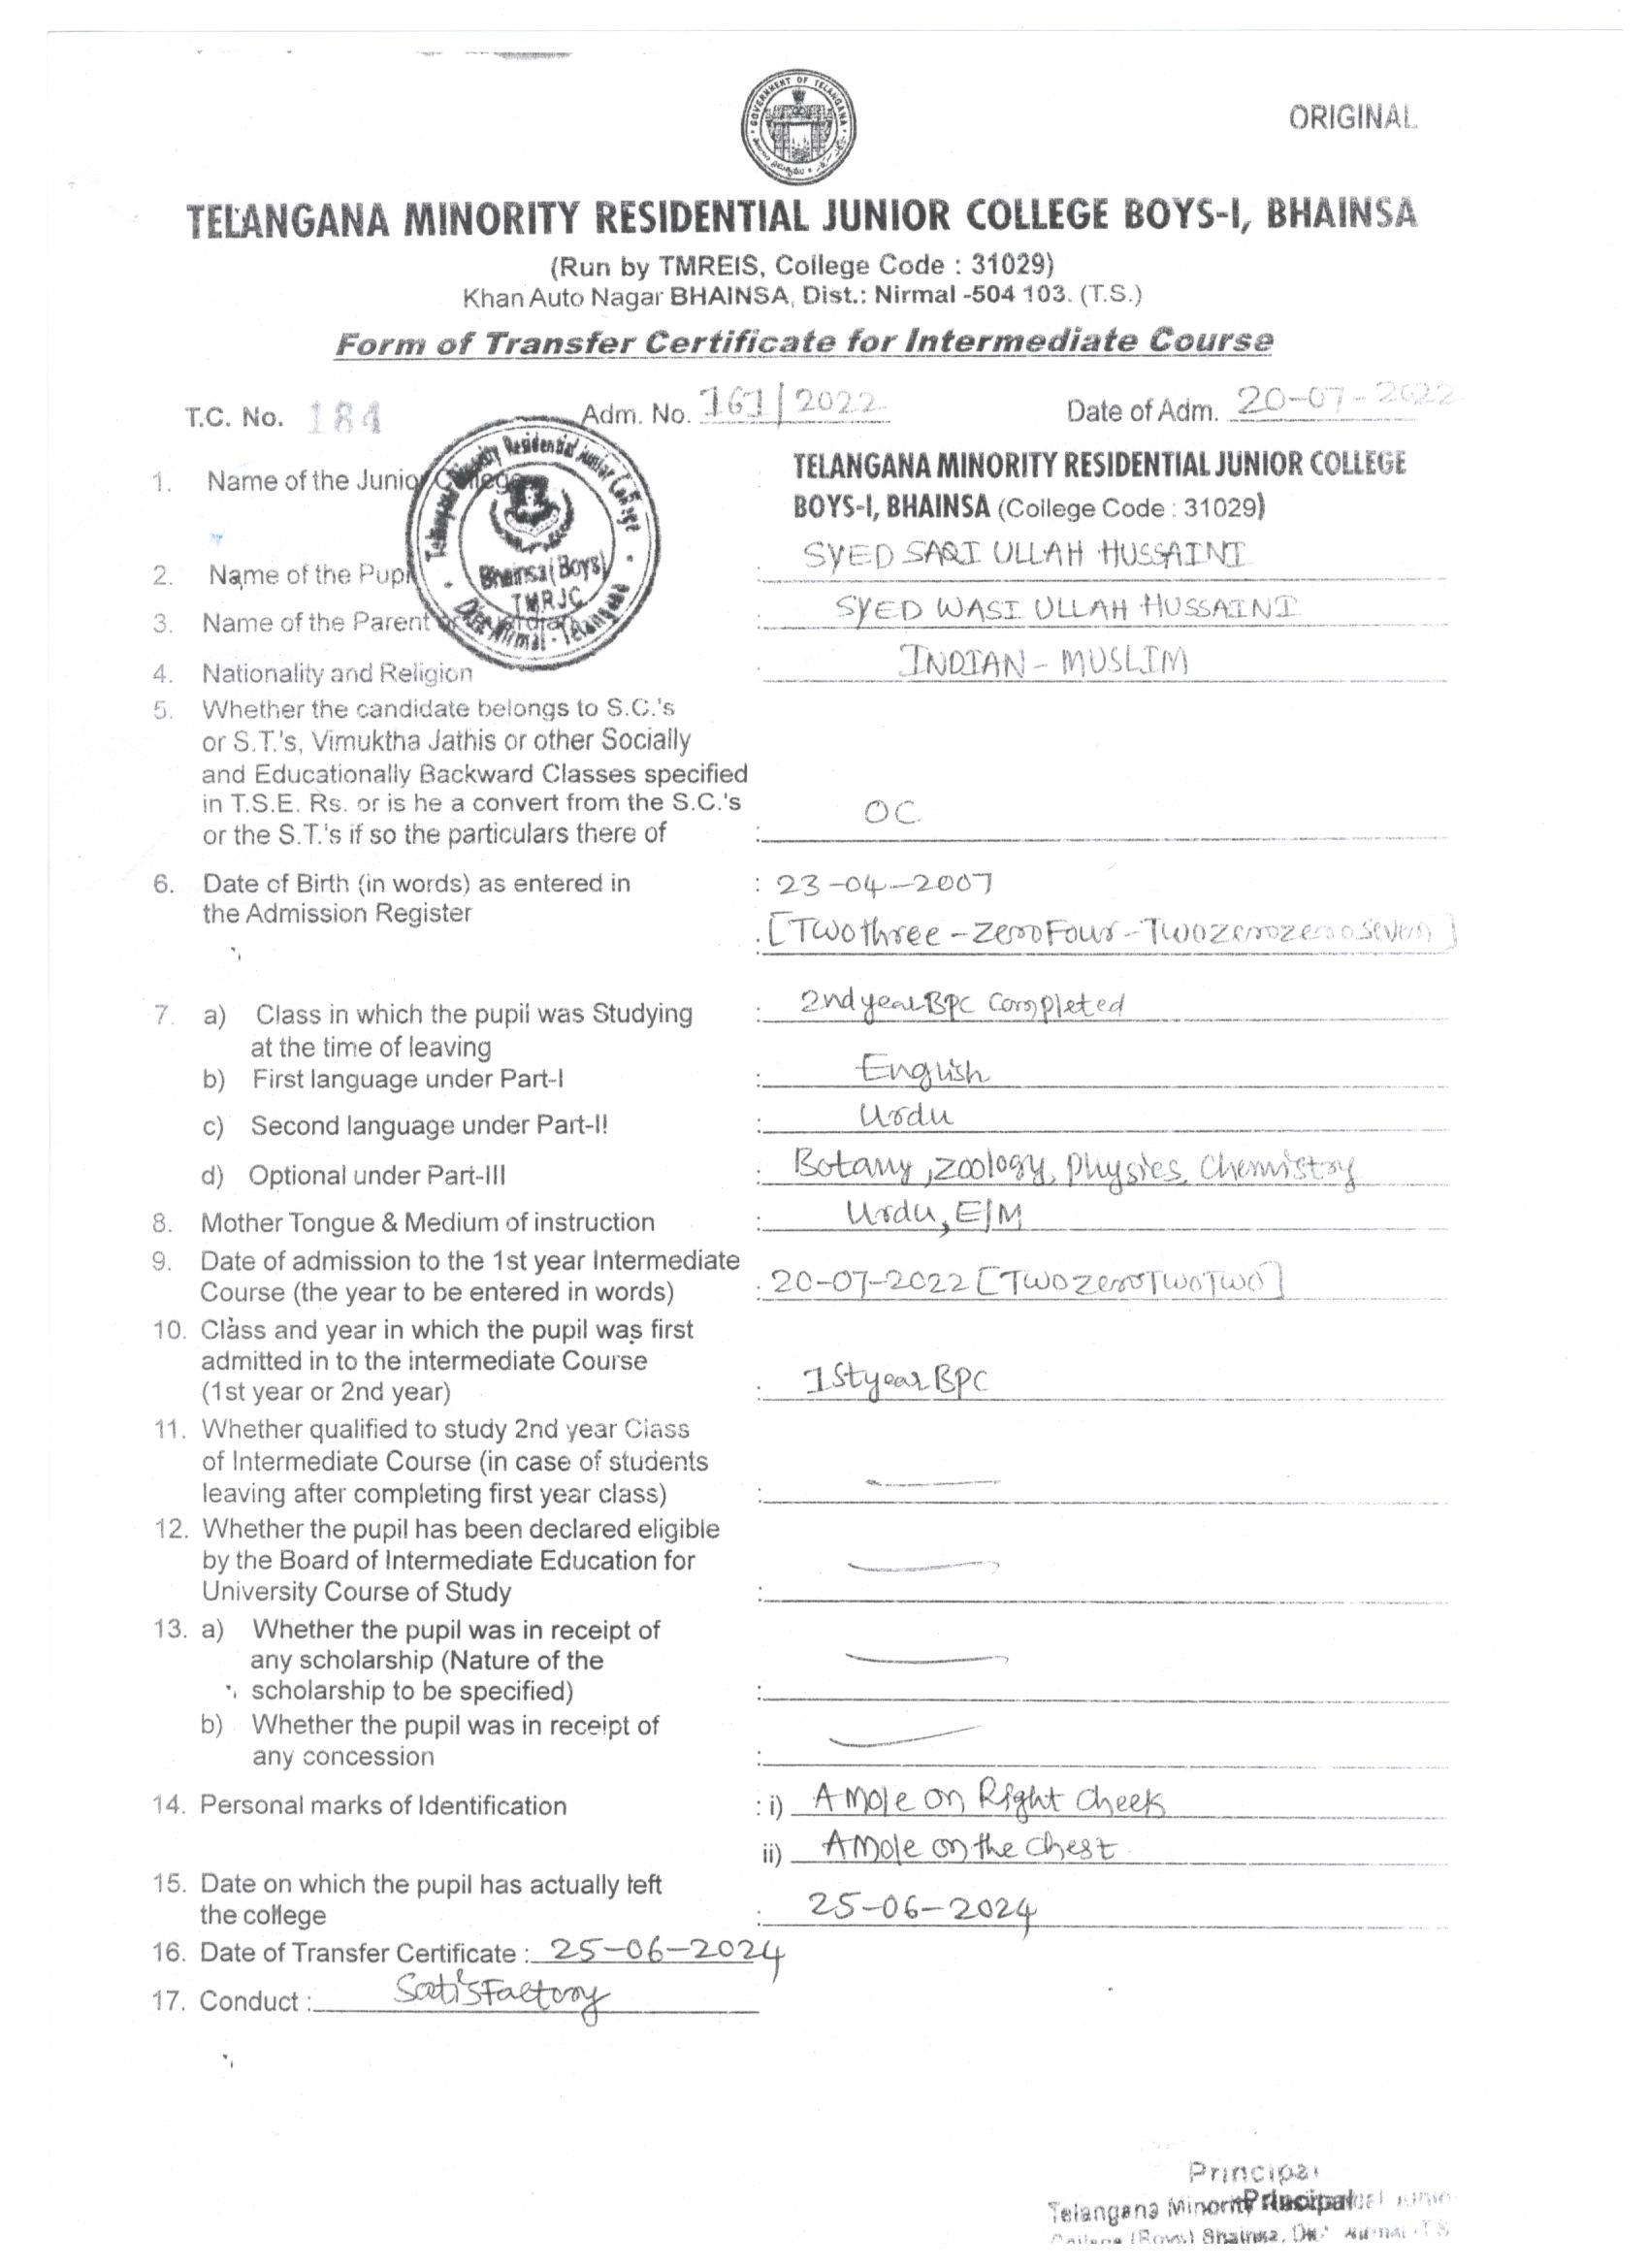 GOVERNMENT OF TELANGANA
ORIGINAL
TELANGANA MINORITY RESIDENTIAL JUNIOR COLLEGE BOYS-I, BHAINSA
(Run by TMREIS, College Code : 31029)
Khan Auto Nagar BHAINSA, Dist.: Nirmal -504 103. (T.S.)
Form of Transfer Certificate for Intermediate Course
T.C. No. 184 Adm. No. 161/2022 Date of Adm. 20-07-2022
Telangana Minority Residential Junior College
Bhainsa (Boys)
TMRJC
Dist. Nirmal - Telangana
1. Name of the Junior College : TELANGANA MINORITY RESIDENTIAL JUNIOR COLLEGE
BOYS-I, BHAINSA (College Code : 31029)
2. Name of the Pupil : SYED SAQI ULLAH HUSSAINI
3. Name of the Parent : SYED WASI ULLAH HUSSAINI
4. Nationality and Religion : INDIAN - MUSLIM
5. Whether the candidate belongs to S.C.'s
or S.T.'s, Vimuktha Jathis or other Socially
and Educationally Backward Classes specified
in T.S.E. Rs. or is he a convert from the S.C.'s
or the S.T.'s if so the particulars there of : OC
6. Date of Birth (in words) as entered in : 23-04-2007
the Admission Register : [Two three - zero Four - Two zero zero seven]
7. a) Class in which the pupil was Studying : 2nd year BPC Completed
at the time of leaving
b) First language under Part-I : English
c) Second language under Part-II : Urdu
d) Optional under Part-III : Botany, zoology, Physics, Chemistry
8. Mother Tongue & Medium of instruction : Urdu, E/M
9. Date of admission to the 1st year Intermediate
Course (the year to be entered in words) : 20-07-2022 [Two zero Two Two]
10. Class and year in which the pupil was first
admitted in to the intermediate Course
(1st year or 2nd year) : 1st year BPC
11. Whether qualified to study 2nd year Class
of Intermediate Course (in case of students
leaving after completing first year class) : —
12. Whether the pupil has been declared eligible
by the Board of Intermediate Education for
University Course of Study : —
13. a) Whether the pupil was in receipt of
any scholarship (Nature of the
scholarship to be specified) : —
b) Whether the pupil was in receipt of
any concession : —
14. Personal marks of Identification : i) A Mole on Right cheek
ii) A Mole on the chest
15. Date on which the pupil has actually left
the college : 25-06-2024
16. Date of Transfer Certificate : 25-06-2024
17. Conduct : Satisfactory
Principal
Telangana Minority Principal
College (Boys) Bhainsa, Dist. Nirmal T.S